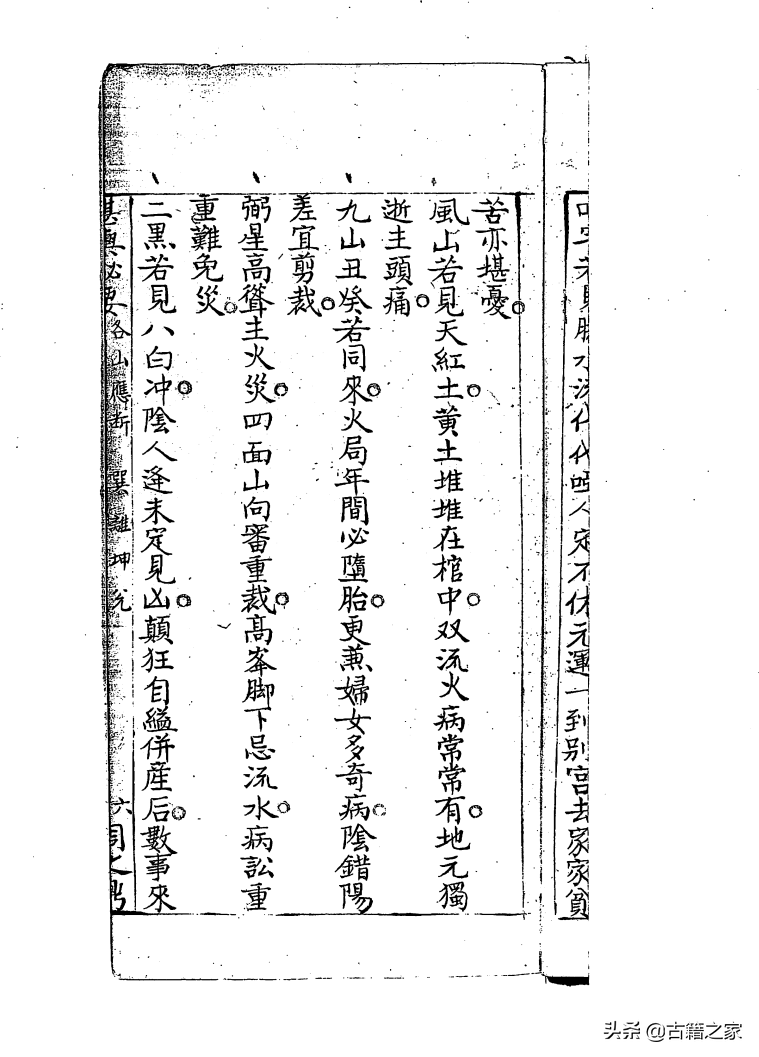 若見水流代代 人定不休元運一到别宫去家家貧
苦亦堪憂。
風山若見天紅土。黄土堆堆在棺中。双流火病常常有。地元獨
逝主頭痛。
九山丑癸若同來。火局年間必墮胎。更蕉婦女多奇病。陰錯陽
差宜剪裁。
弼星高聳主火災。四面山向審重裁。高峯脚下忌流水。病訟重
重難免災。
二黑若見八白冲。陰人逢未定見凶。顛狂自縊併産后。數事來
堪輿必要 各山應斷 巽離坤兑 六
头条 @古籍之家